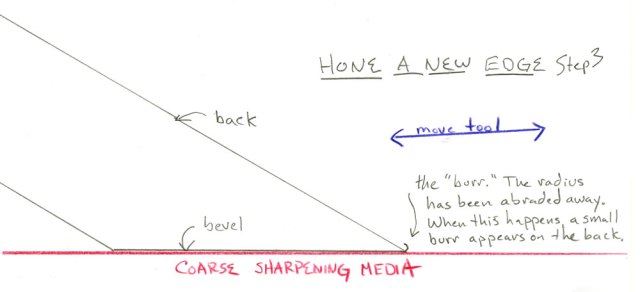 HONE A NEW EDGE Step 3
back
move tool
the "burr." The radius
has been abraded away.
When this happens a small
burr appears on the back.
bevel
COARSE SHARPENING MEDIA